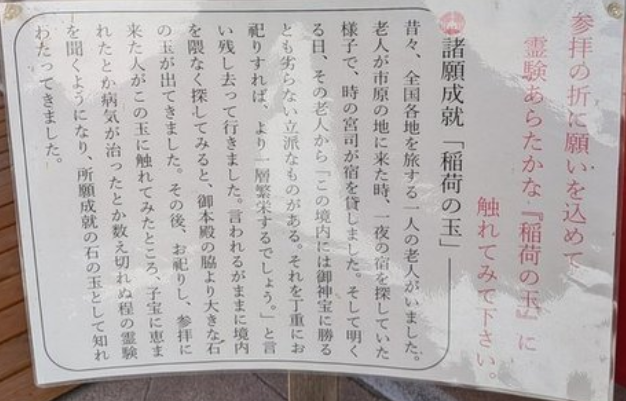 参拝の折に願いを込めて
霊験あらたかな『稲荷の玉』に
触れてみて下さい。
諸願成就「稲荷の玉」
昔々、全国各地を旅する一人の老人がいました。
老人が市原の地に来た時、一夜の宿を探していた
様子で、時の宮司が宿を貸しました。そして明く
る日、その老人から「この境内には御神宝に勝る
とも劣らない立派なものがある。それを丁重にお
祀りすれば、より一層繁栄するでしょう。」と言
い残し去って行きました。言われるがままに境内
を隈なく探してみると、御本殿の脇より大きな石
の玉が出てきました。その後、お祀りし、参拝に
来た人がこの玉に触れてみたところ、子宝に恵ま
れたとか病気が治ったとか数え切れぬ程の霊験
を聞くようになり、所願成就の石の玉として知れ
わたってきました。